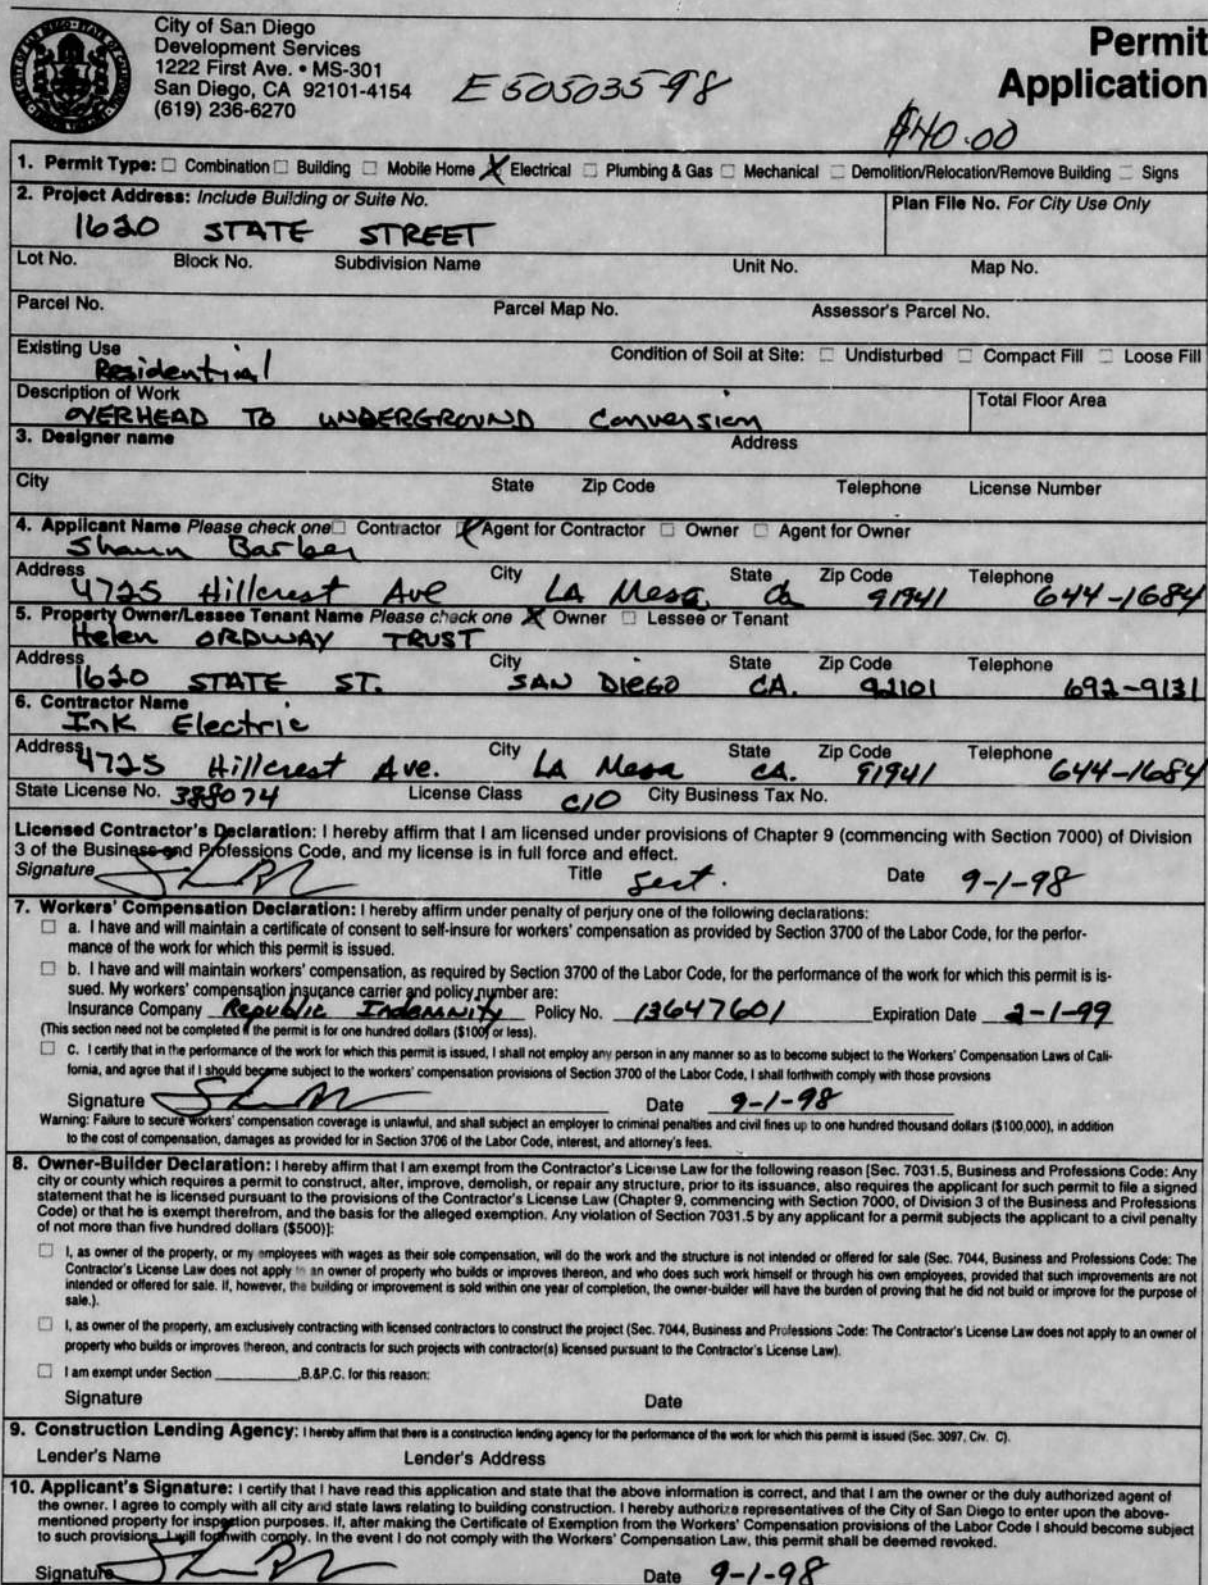 City of San Diego
Development Services
1222 First Ave. • MS-301
San Diego, CA 92101-4154
(619) 236-6270
E505035-98
Permit
Application
$40.00
1. Permit Type: ☐ Combination ☐ Building ☐ Mobile Home ☒ Electrical ☐ Plumbing & Gas ☐ Mechanical ☐ Demolition/Relocation/Remove Building ☐ Signs
2. Project Address: Include Building or Suite No. Plan File No. For City Use Only
1620 STATE STREET
Lot No. Block No. Subdivision Name Unit No. Map No.
Parcel No. Parcel Map No. Assessor's Parcel No.
Existing Use Condition of Soil at Site: ☐ Undisturbed ☐ Compact Fill ☐ Loose Fill
Residential
Description of Work Total Floor Area
OVERHEAD TO UNDERGROUND Conversion
3. Designer name Address
City State Zip Code Telephone License Number
4. Applicant Name Please check one ☐ Contractor ☒ Agent for Contractor ☐ Owner ☐ Agent for Owner
Shaun Barber
Address City State Zip Code Telephone
4725 Hillcrest Ave LA Mesa Ca 91941 644-1684
5. Property Owner/Lessee Tenant Name Please check one ☒ Owner ☐ Lessee or Tenant
Helen ORDWAY TRUST
Address City State Zip Code Telephone
1620 STATE ST. SAN DIEGO CA. 92101 692-9131
6. Contractor Name
Ink Electric
Address City State Zip Code Telephone
4725 Hillcrest Ave. LA Mesa CA. 91941 644-1684
State License No. 388074 License Class C10 City Business Tax No.
Licensed Contractor's Declaration: I hereby affirm that I am licensed under provisions of Chapter 9 (commencing with Section 7000) of Division
3 of the Business and Professions Code, and my license is in full force and effect.
Signature Title Date 9-1-98
7. Workers' Compensation Declaration: I hereby affirm under penalty of perjury one of the following declarations:
☐ a. I have and will maintain a certificate of consent to self-insure for workers' compensation as provided by Section 3700 of the Labor Code, for the perfor-
mance of the work for which this permit is issued.
☐ b. I have and will maintain workers' compensation, as required by Section 3700 of the Labor Code, for the performance of the work for which this permit is is-
sued. My workers' compensation insurance carrier and policy number are:
Insurance Company Republic Indemnity Policy No. 13647601 Expiration Date 2-1-99
(This section need not be completed if the permit is for one hundred dollars ($100) or less).
☐ C. I certify that in the performance of the work for which this permit is issued, I shall not employ any person in any manner so as to become subject to the Workers' Compensation Laws of Cali-
fornia, and agree that if I should became subject to the workers' compensation provisions of Section 3700 of the Labor Code, I shall forthwith comply with those provsions
Signature Date 9-1-98
Warning: Failure to secure workers' compensation coverage is unlawful, and shall subject an employer to criminal penalties and civil fines up to one hundred thousand dollars ($100,000), in addition
to the cost of compensation, damages as provided for in Section 3706 of the Labor Code, interest, and attorney's fees.
8. Owner-Builder Declaration: I hereby affirm that I am exempt from the Contractor's License Law for the following reason [Sec. 7031.5, Business and Professions Code: Any
city or county which requires a permit to construct, alter, improve, demolish, or repair any structure, prior to its issuance, also requires the applicant for such permit to file a signed
statement that he is licensed pursuant to the provisions of the Contractor's License Law (Chapter 9, commencing with Section 7000, of Division 3 of the Business and Professions
Code) or that he is exempt therefrom, and the basis for the alleged exemption. Any violation of Section 7031.5 by any applicant for a permit subjects the applicant to a civil penalty
of not more than five hundred dollars ($500)]:
☐ I, as owner of the property, or my employees with wages as their sole compensation, will do the work and the structure is not intended or offered for sale (Sec. 7044, Business and Professions Code: The
Contractor's License Law does not apply to an owner of property who builds or improves thereon, and who does such work himself or through his own employees, provided that such improvements are not
intended or offered for sale. If, however, the building or improvement is sold within one year of completion, the owner-builder will have the burden of proving that he did not build or improve for the purpose of
sale.).
☐ I, as owner of the property, am exclusively contracting with licensed contractors to construct the project (Sec. 7044, Business and Professions Code: The Contractor's License Law does not apply to an owner of
property who builds or improves thereon, and contracts for such projects with contractor(s) licensed pursuant to the Contractor's License Law).
☐ I am exempt under Section ____________,B.&P.C. for this reason:
Signature Date
9. Construction Lending Agency: I hereby affirm that there is a construction lending agency for the performance of the work for which this permit is issued (Sec. 3097, Civ. C).
Lender's Name Lender's Address
10. Applicant's Signature: I certify that I have read this application and state that the above information is correct, and that I am the owner or the duly authorized agent of
the owner. I agree to comply with all city and state laws relating to building construction. I hereby authorize representatives of the City of San Diego to enter upon the above-
mentioned property for inspection purposes. If, after making the Certificate of Exemption from the Workers' Compensation provisions of the Labor Code I should become subject
to such provisions, I will forthwith comply. In the event I do not comply with the Workers' Compensation Law, this permit shall be deemed revoked.
Signature Date 9-1-98